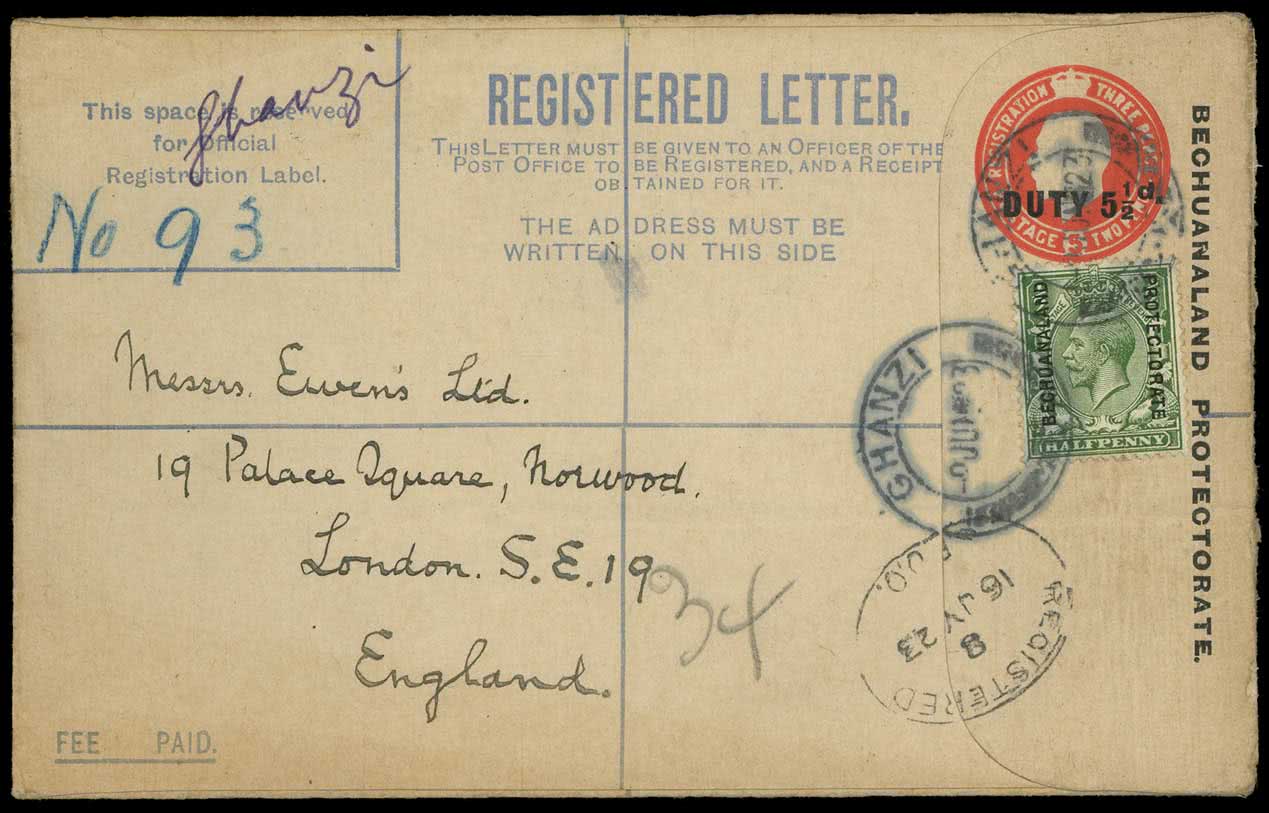 This space is reserved
for Official
Registration Label.
Ghanzi
No 93
REGISTERED LETTER.
THIS LETTER MUST BE GIVEN TO AN OFFICER OF THE
POST OFFICE TO BE REGISTERED, AND A RECEIPT
OBTAINED FOR IT.
THE ADDRESS MUST BE
WRITTEN ON THIS SIDE
REGISTRATION THREE PENCE
POSTAGE TWO PENCE
DUTY 5½d.
BECHUANALAND PROTECTORATE.
BECHUANALAND PROTECTORATE
HALFPENNY
GHANZI
Messrs. Ewen's Ltd.
19 Palace Square, Norwood.
London. S.E.19
England.
34
REGISTERED
8
16 JY 23
FEE PAID.